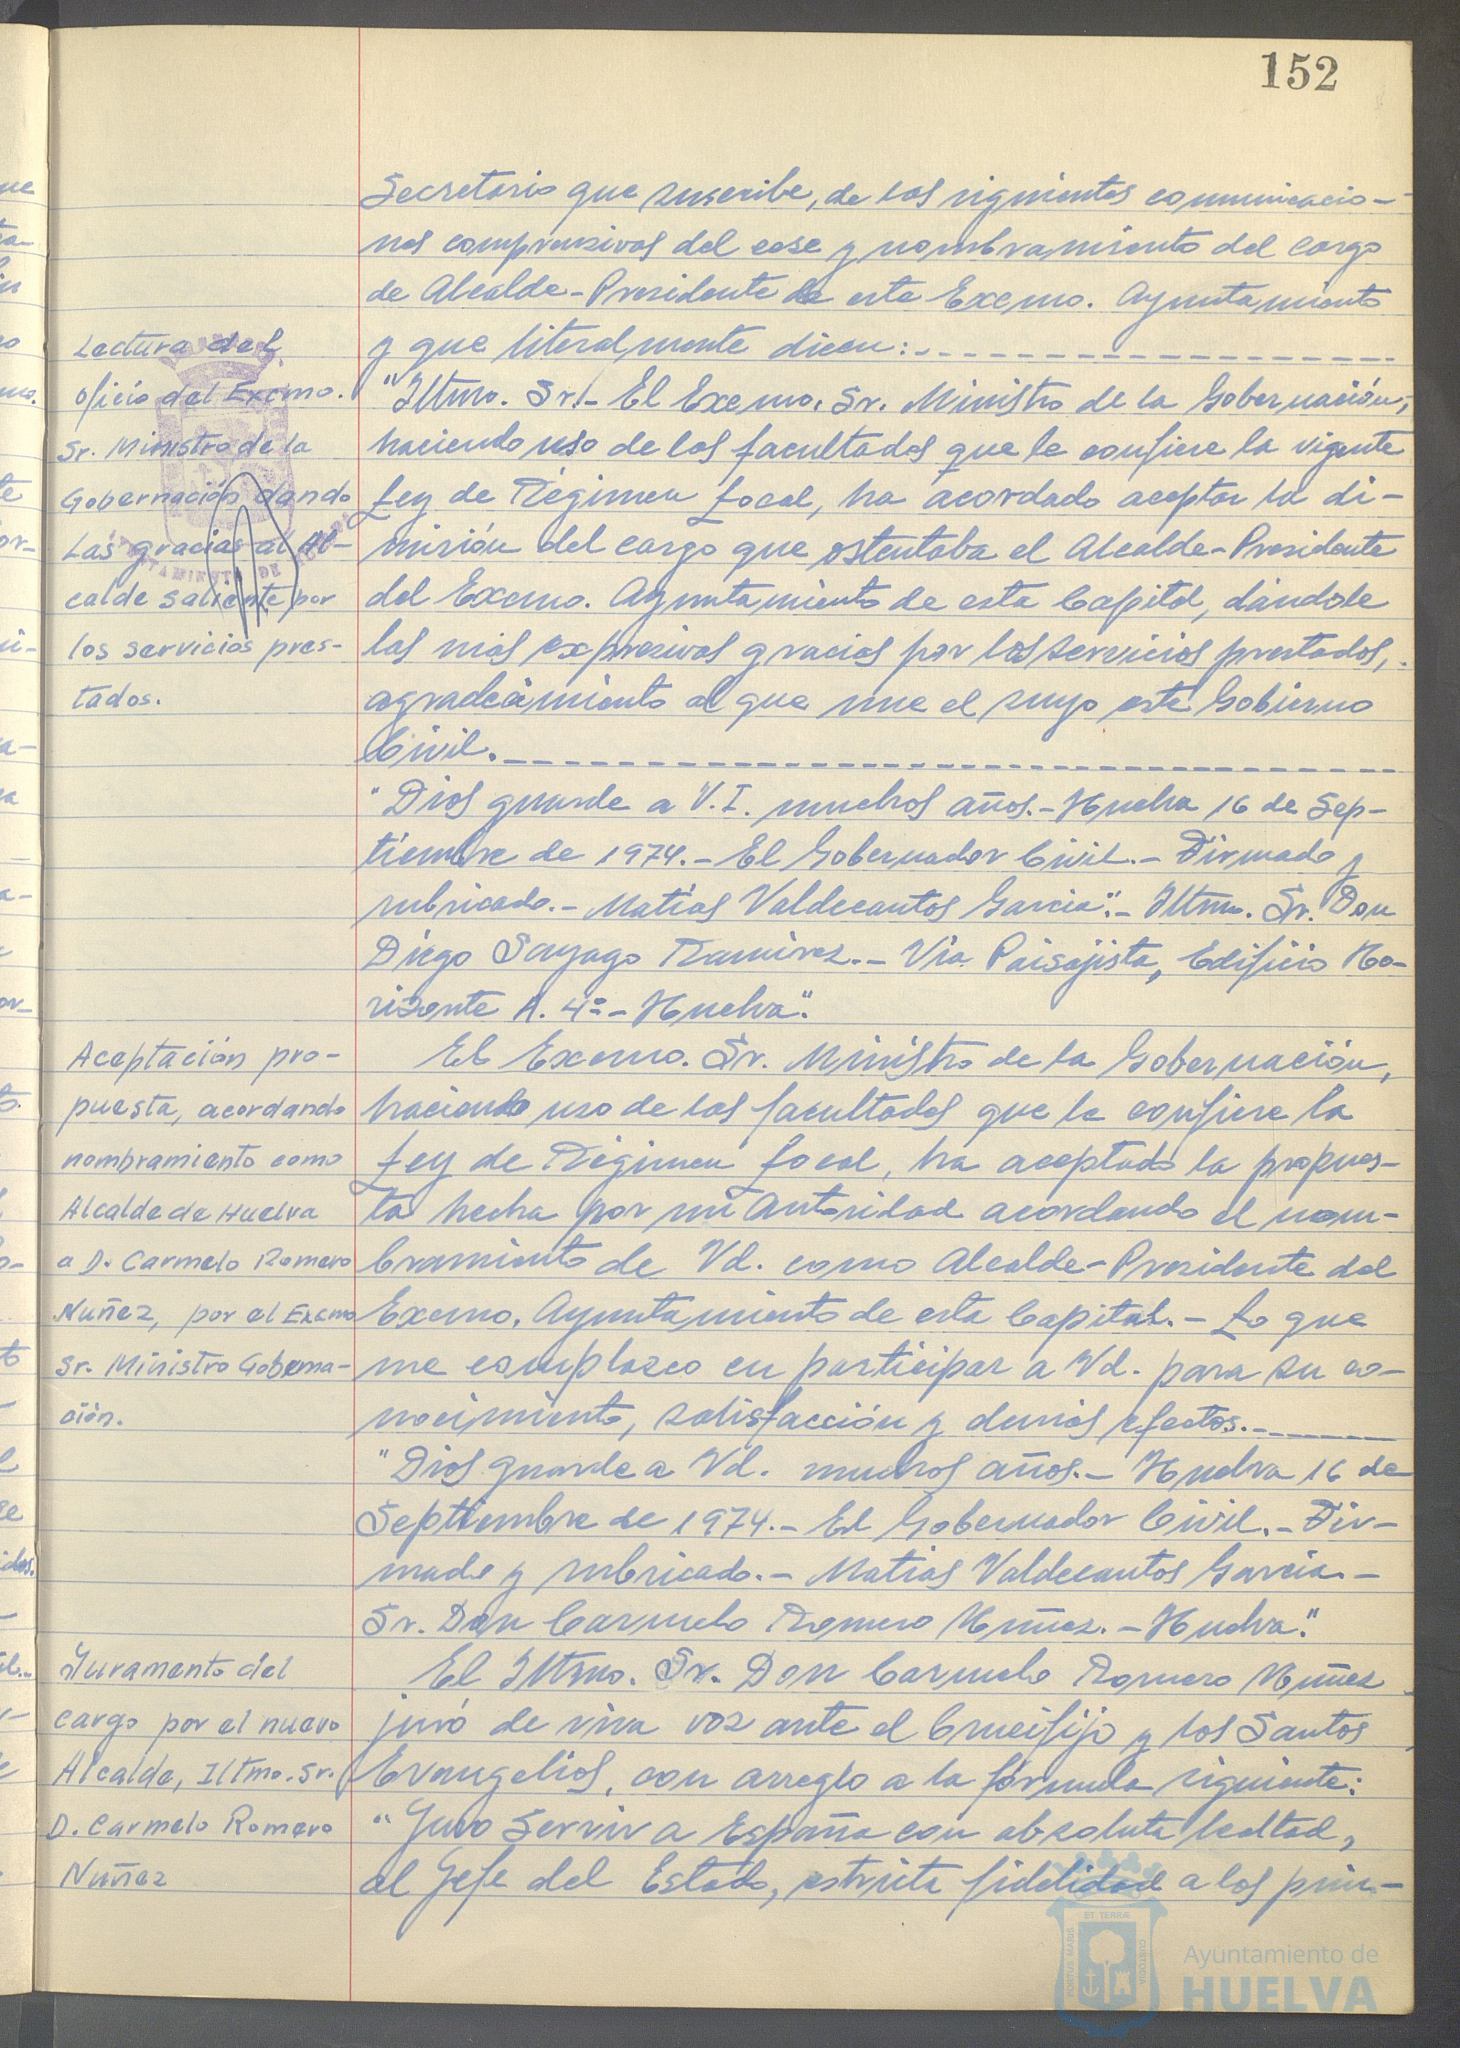 152
Secretario que suscribe, de las siguientes comunicacio-
nes comprensivas del cese y nombramiento del cargo
de Alcalde-Presidente de este Excmo. Ayuntamiento
y que literalmente dicen:
Lectura del
Oficio del Excmo.
Sr. Ministro de la
Gobernación dando
las gracias al Al-
calde saliente por
los servicios pres-
tados.
"Iltmo. Sr.- El Excmo. Sr. Ministro de la Gobernación,
haciendo uso de las facultades que le confiere la vigente
Ley de Régimen Local, ha acordado aceptar la di-
misión del cargo que ostentaba el Alcalde-Presidente
del Excmo. Ayuntamiento de esta Capital, dándole
las más expresivas gracias por los servicios prestados,
agradecimiento al que une el suyo este Gobierno
Civil.
"Dios guarde a V.I. muchos años.- Huelva 16 de Sep-
tiembre de 1974.- El Gobernador Civil.- Firmado y
rubricado.- Matías Valdecantos García".- Iltmo. Sr. Don
Diego Sayago Ramírez.- Vía Paisajista, Edificio Ho-
rizonte A. 4º- Huelva".
Aceptación pro-
puesta, acordando
nombramiento como
Alcalde de Huelva
a D. Carmelo Romero
Nuñez, por el Excmo
Sr. Ministro Goberna-
ción.
El Excmo. Sr. Ministro de la Gobernación,
haciendo uso de las facultades que le confiere la
Ley de Régimen Local, ha aceptado la propues-
ta hecha por mi Autoridad acordando el nom-
bramiento de Vd. como Alcalde-Presidente del
Excmo. Ayuntamiento de esta Capital.- Lo que
me complazco en participar a Vd. para su co-
nocimiento, satisfacción y demás efectos.
"Dios guarde a Vd. muchos años.- Huelva 16 de
Septiembre de 1974.- El Gobernador Civil.- Fir-
mado y rubricado.- Matías Valdecantos García.-
Sr. Don Carmelo Romero Nuñez.- Huelva."
Juramento del
cargo por el nuevo
Alcalde, Iltmo. Sr.
D. Carmelo Romero
Nuñez
El Iltmo. Sr. Don Carmelo Romero Nuñez
juró de viva voz ante el Crucifijo y los Santos
Evangelios, con arreglo a la fórmula siguiente:
"Juro Servir a España con absoluta lealtad,
al Jefe del Estado, estricta fidelidad a los prin-
PORTUS MARIS ET TERRAE CUSTODIA
Ayuntamiento de
HUELVA